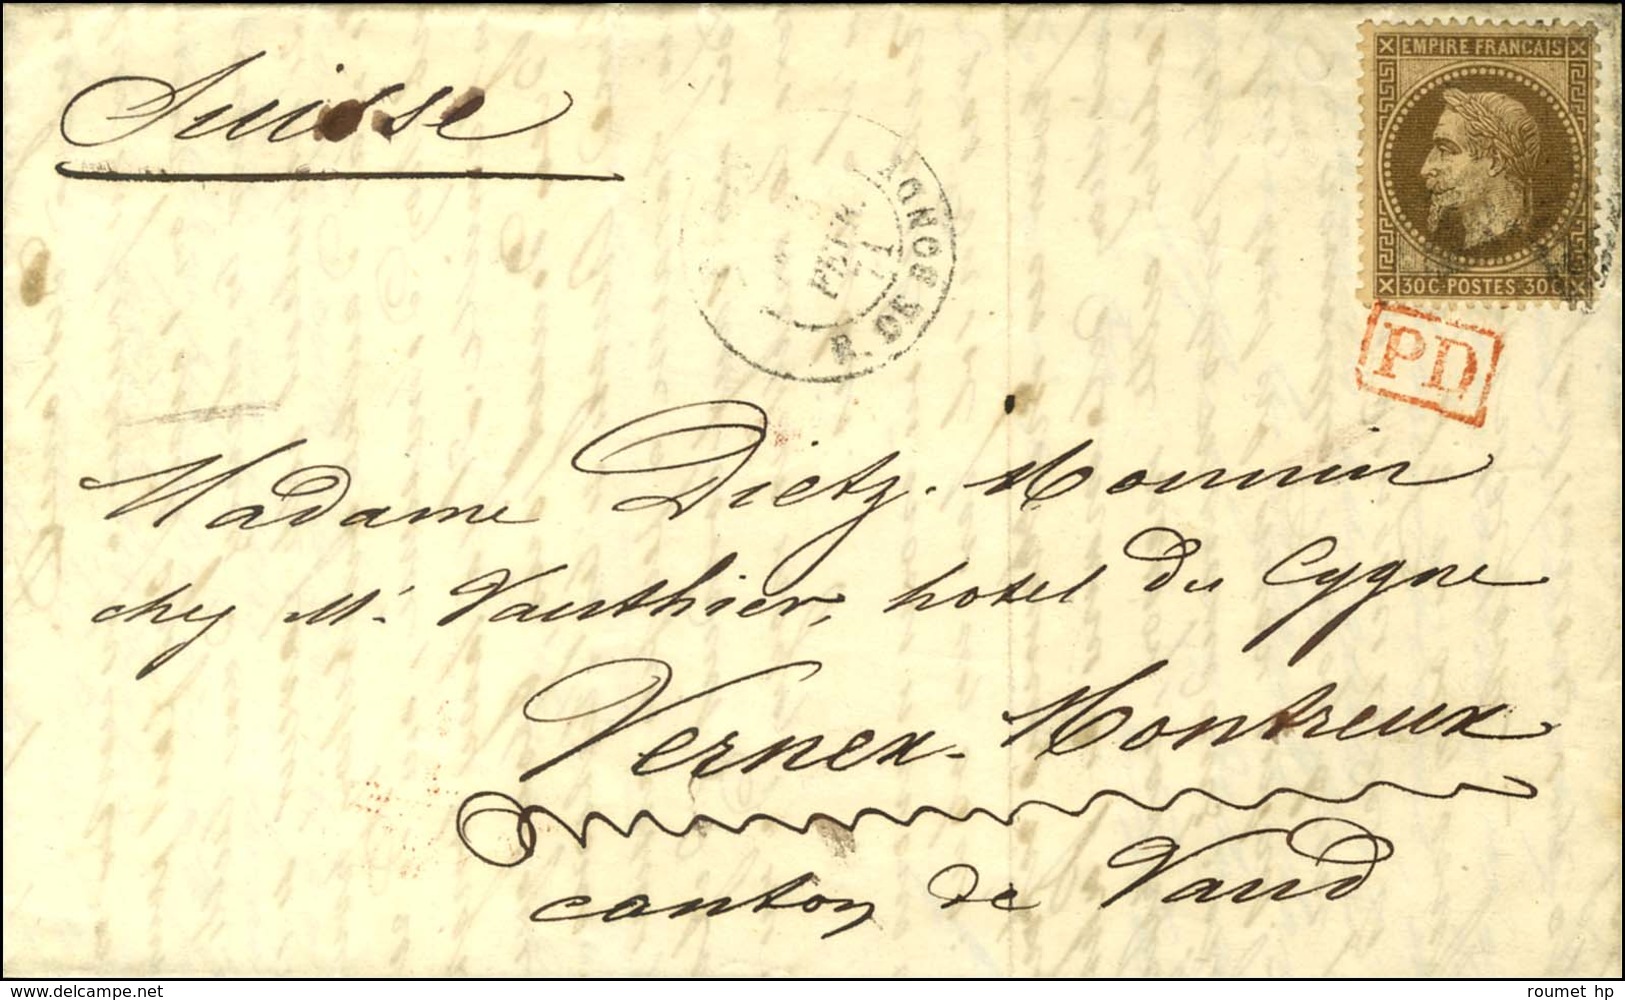 Suisse
EMPIRE FRANCAIS
30C POSTES 30C
FEVR.
71
R. DE BONDY
PD
Madame Dietz-Monnin
chez Mr. Vauthier, hotel du Cygne
Vernex-Montreux
canton de Vaud
www.delcampe.net
roumet hp